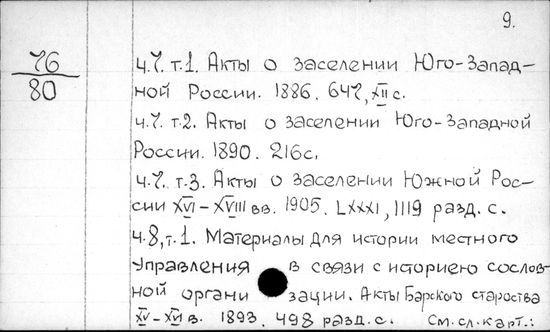 9.
76
80
ч.7. т.1. Акты о заселении Юго-Запад-
ной России. 1886. 647, XII с.
ч.7. т.2. Акты о заселении Юго-Западной
России. 1890. 216с.
ч.7. т.3. Акты о заселении Южной Рос-
сии XVI-XVIII вв. 1905. LXXXI, 1119 разд. с.
ч.8, т.1. Материалы для истории местного
Управления в связи с историею сослов-
ной органи зации. Акты Барского староства
XV-XVI в. 1893. 498 разд. с. См. сл. карт.: